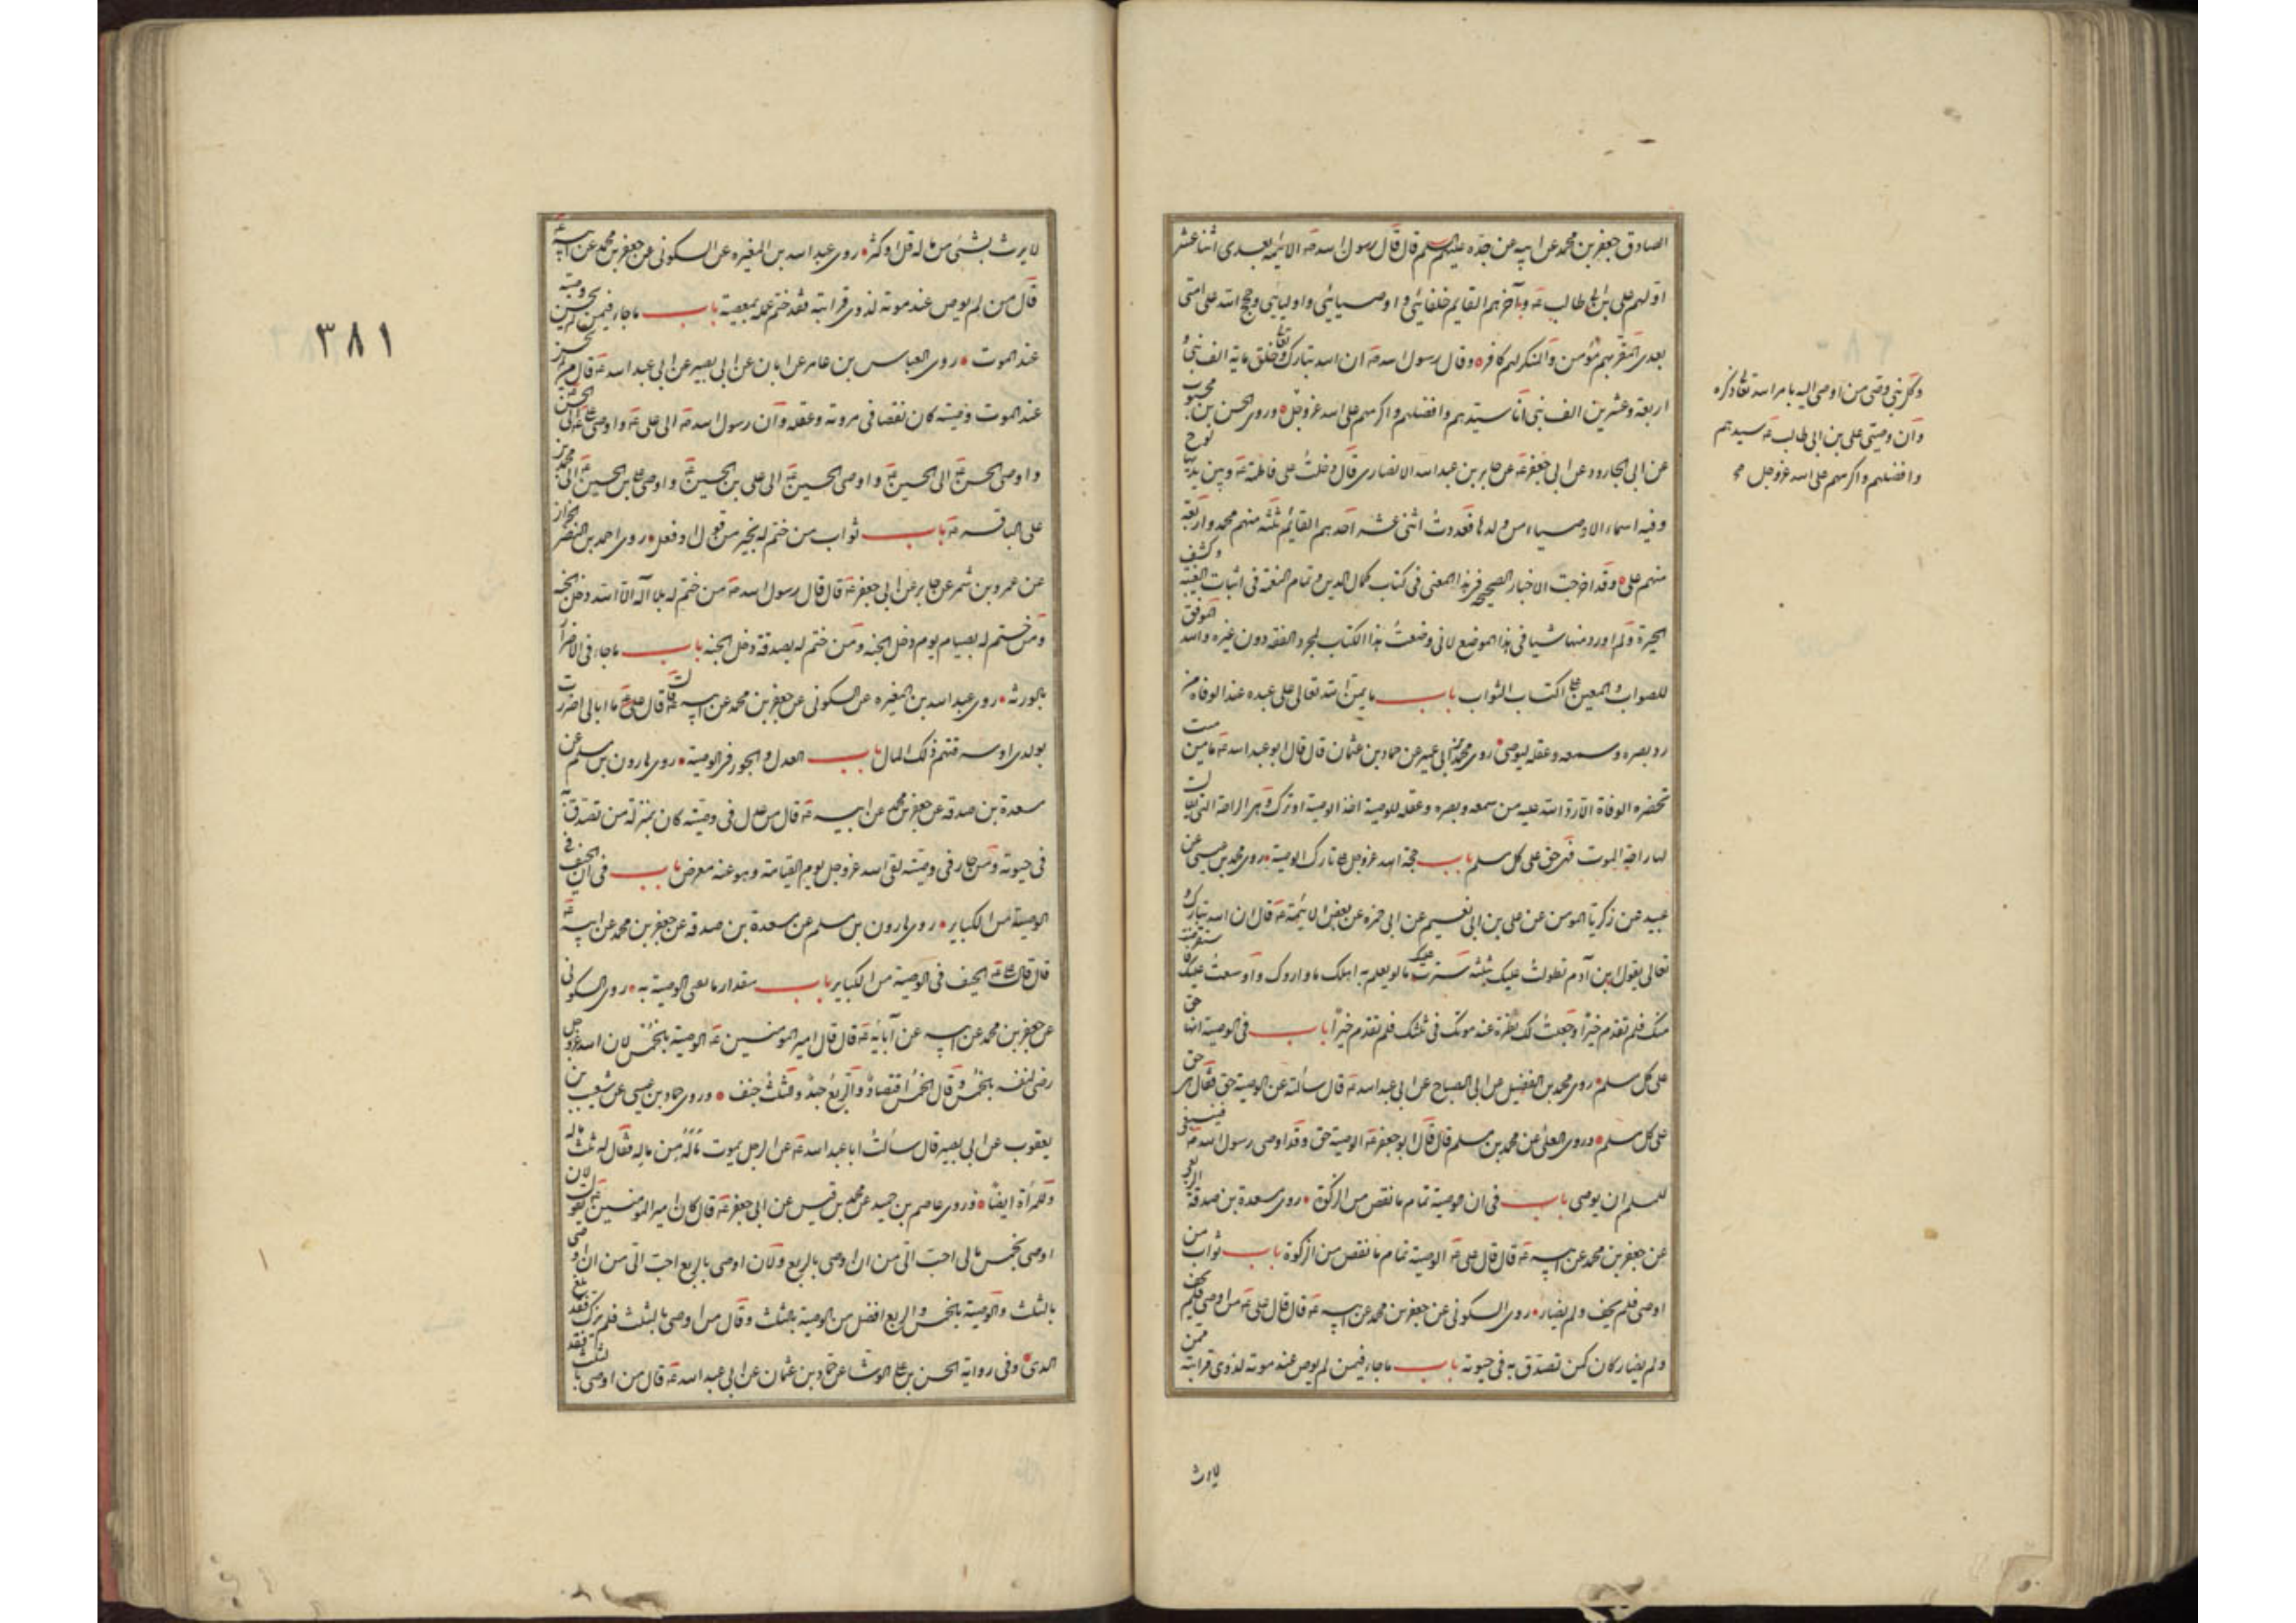 الصادق جعفر بن محمد عن ابيه عن جده عليهم السلم قال قال رسول الله صه الائمه بعدى اثنا عشر
اولهم على بن ابى طالب عه وآخرهم القايم خلفائى واوصيائى واوليائى وحجج الله على امتى
بعدى المقر بهم مؤمن والمنكر لهم كافر وقال رسول الله صه ان الله تبارك وتعا خلق ماية الف نبى و
اربعة وعشرين الف نبى انا سيدهم وافضلهم واكرمهم على الله عزوجل وروى الحسن بن محبوب
عن ابى الجارود عن ابى جعفر عه عن جابر بن عبدالله الانصارى قال دخلت على فاطمة عه وبين يديها لوح
وفيه اسماء الاوصياء من ولدها فعددت اثنى عشر احدهم القائم ثلثه منهم محمد واربعة
منهم على وقد اخرجت الاخبار الصحيحه فى هذا المعنى فى كتاب كمال الدين وتمام النعمة فى اثبات الغيبة وكشف
الحيرة ولم اورد منها شيا فى هذا الموضع لانى وضعت هذا الكتاب لمجرد الفقه دون غيره والله الموفق
للصواب والمعين على اكتساب الثواب باب ما يمن الله تعالى على عبده عند الوفاه من
رد بصره وسمعه وعقله ليوصى روى محمد بن ابى عمير عن حماد بن عثمان قال قال ابو عبدالله عه ما من ميت
تحضره الوفاة الا رد الله عليه من سمعه وبصره وعقله للوصية اخذ الوصية او ترك وهى الراحة التى يقال
لها راحة الموت فهى حق على كل مسلم باب حجة الله عزوجل على تارك الوصية روى محمد بن عيسى عن
عبيد عن زكريا المومن عن على بن ابى نعيم عن ابى حمزه عن بعض الائمة عه قال ان الله تبارك و
تعالى يقول ابن آدم تطولت عليك بثلثه سترت عليك ما لو يعلم به اهلك ما واروك واوسعت عليك فاستقرضت
منك فلم تقدم خيرا وجعلت لك نظرة عند موتك فى ثلثك فلم تقدم خيرا باب فى الوصية انها حق
على كل مسلم روى محمد بن الفضيل عن ابى الصباح عن ابى عبدالله عه قال سألته عن الوصية حق فقال هى حق
على كل مسلم وروى العلا عن محمد بن مسلم قال قال ابو جعفر عه الوصية حق وقد اوصى رسول الله صه فينبغى
للمسلم ان يوصى باب فى ان الوصية تمام ما نقص من الزكوة روى مسعدة بن صدقة الربعى
عن جعفر بن محمد عن ابيه عه قال قال على عه الوصية تمام ما نقص من الزكوة باب ثواب من
اوصى فلم يحف ولم يضار روى السكونى عن جعفر بن محمد عن ابيه عه قال قال على عه من اوصى فلم يحف
ولم يضار كان كمن تصدق به فى حيوته باب ما جاء فيمن لم يوص عند موته لذوى قرابته ممن
لا يرث
وكل نبى وصى من اوصى اليه بامر الله تعا ذكره
وان وصيى على بن ابى طالب عه سيدهم
وافضلهم واكرمهم على الله عزوجل
٣٨١
لا يرث بشئ من ماله قل او كثر روى عبدالله بن المغيره عن السكونى عن جعفر بن محمد عن ابيه عه
قال من لم يوص عند موته لذوى قرابته فقد ختم عمله بمعصية باب ما جاء فيمن لم يحسن وصيته
عند الموت روى العباس بن عامر عن ابان عن ابى بصير عن ابى عبدالله عه قال من لم يحسن
عند الموت وصيته كان نقصا فى مروته وعقله وان رسول الله صه الى على عه واوصى على عه الى الحسن
واوصى الحسن عه الى الحسين عه واوصى الحسين عه الى على بن الحسين عه واوصى على بن الحسين عه الى محمد بن
على الباقر عه باب ثواب من ختم له بخير من قول او فعل روى احمد بن النضر الخزاز
عن عمرو بن شمر عن جابر عن ابى جعفر عه قال قال رسول الله صه من ختم له بلا اله الا الله دخل الجنه
ومن ختم له بصيام يوم دخل الجنه ومن ختم له بصدقة دخل الجنه باب ما جاء فى الاضرار
بالورثه روى عبدالله بن المغيره عن السكونى عن جعفر بن محمد عن ابيه عه قال قال على عه ما ابالى اضررت
بولدى او سرقتهم ذلك المال باب العدل والجور فى الوصية روى هارون بن مسلم عن
مسعدة بن صدقه عن جعفر بن محمد عن ابيه عه قال من عدل فى وصيته كان بمنزلة من تصدق بها
فى حيوته ومن جار فى وصيته لقى الله عزوجل يوم القيامة وهو عنه معرض باب فى ان الحيف فى
الوصية من الكباير روى هارون بن مسلم عن مسعدة بن صدقه عن جعفر بن محمد عن ابيه عه
قال قال على عه الحيف فى الوصية من الكباير باب مقدار ما يستحب الوصية به روى السكونى
عن جعفر بن محمد عن ابيه عن آبائه عه قال قال امير المومنين عه الوصية بالخمس لان الله عزوجل
رضى لنفسه بالخمس وقال الخمس اقتصاد والربع جهد والثلث حيف وروى حماد بن عيسى عن شعيب بن
يعقوب عن ابى بصير قال سالت ابا عبدالله عه عن الرجل يموت ماله من ماله فقال له ثلث ماله
وللمرأة ايضا وروى عاصم بن حميد عن محمد بن قيس عن ابى جعفر عه قال كان امير المومنين عه يقول لان
اوصى بخمس مالى احب الى من ان اوصى بالربع ولان اوصى بالربع احب الى من ان اوصى
بالثلث والوصية بالخمس والربع افضل من الوصية بالثلث وقال من اوصى بالثلث فلم يترك فقد بلغ
المدى وفى رواية الحسن بن على الوشا عن حماد بن عثمان عن ابى عبدالله عه قال من اوصى بالثلث فقد